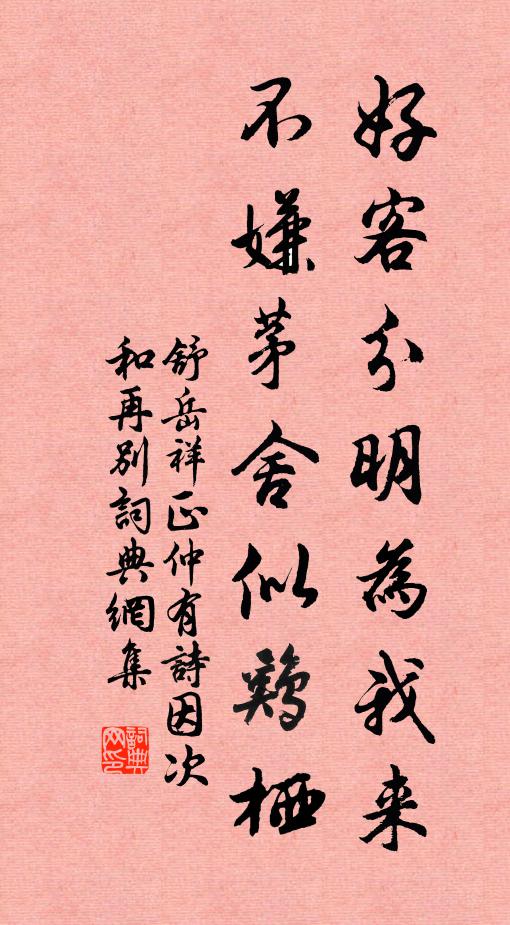 好客分明為我来
不嫌茅舍似鷄栖
舒岳祥正仲有詩因次
和再別詞典網集
詞典
网印